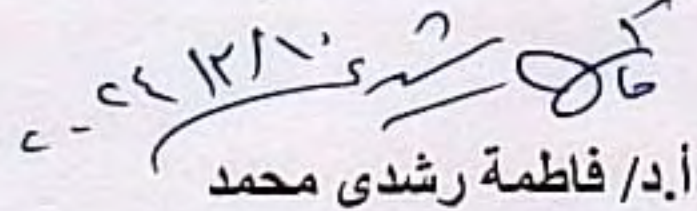 فاطمة رشدى ١٠/١٢/٢٠٢٤
أ.د/ فاطمة رشدى محمد